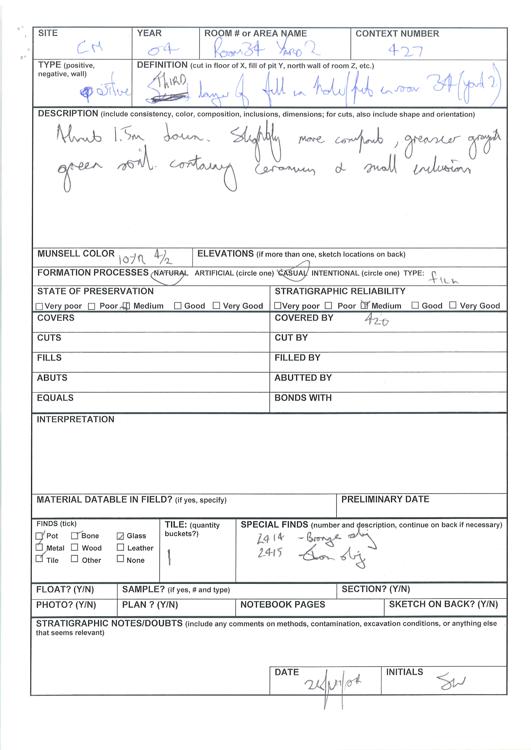 SITE YEAR ROOM # or AREA NAME CONTEXT NUMBER
CM 04 Room 34 Yard 2 427
TYPE (positive, negative, wall) DEFINITION (cut in floor of X, fill of pit Y, north wall of room Z, etc.)
positive THIRD layer of fill in hole/pit in room 34 (yard 2)
DESCRIPTION (include consistency, color, composition, inclusions, dimensions; for cuts, also include shape and orientation)
About 1.5m down. Slightly more compact, greasier greyish
green soil containing ceramics & small inclusions
MUNSELL COLOR 10YR 4/2 ELEVATIONS (if more than one, sketch locations on back)
FORMATION PROCESSES NATURAL ARTIFICIAL (circle one) CASUAL INTENTIONAL (circle one) TYPE: fill
STATE OF PRESERVATION STRATIGRAPHIC RELIABILITY
Very poor Poor Medium Good Very Good Very poor Poor Medium Good Very Good
COVERS COVERED BY 420
CUTS CUT BY
FILLS FILLED BY
ABUTS ABUTTED BY
EQUALS BONDS WITH
INTERPRETATION
MATERIAL DATABLE IN FIELD? (if yes, specify) PRELIMINARY DATE
FINDS (tick) TILE: (quantity buckets?) SPECIAL FINDS (number and description, continue on back if necessary)
Pot Bone Glass 2414 - Bronze obj
Metal Wood Leather 1 2415 - Iron obj
Tile Other None
FLOAT? (Y/N) SAMPLE? (if yes, # and type) SECTION? (Y/N)
PHOTO? (Y/N) PLAN ? (Y/N) NOTEBOOK PAGES SKETCH ON BACK? (Y/N)
STRATIGRAPHIC NOTES/DOUBTS (include any comments on methods, contamination, excavation conditions, or anything else
that seems relevant)
DATE INITIALS
SW